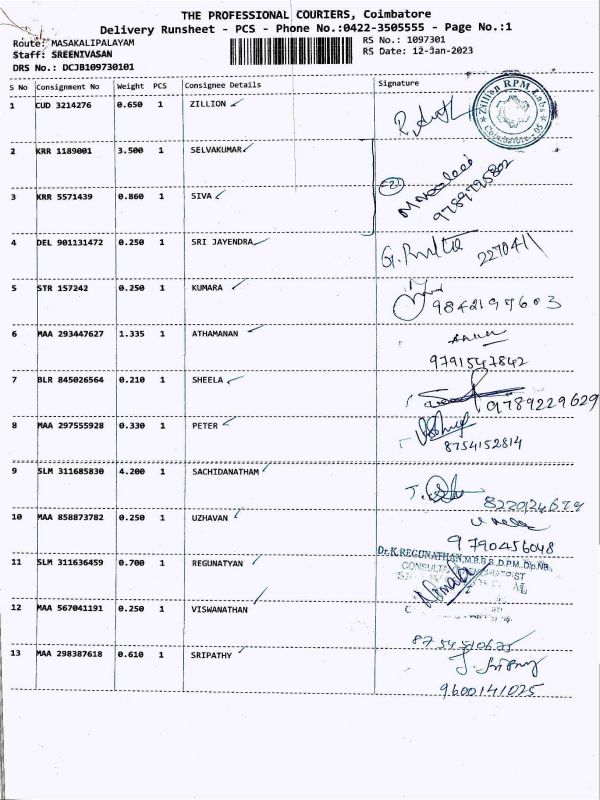 THE PROFESSIONAL COURIERS, Coimbatore
Delivery Runsheet - PCS - Phone No.:0422-3505555 - Page No.:1
Route: MASAKALIPALAYAM
Staff: SREENIVASAN
DRS No.: DCJB109730101
RS No.: 1097301
RS Date: 12-Jan-2023
S No Consignment No Weight PCS Consignee Details Signature
1 CUD 3214276 0.650 1 ZILLION
Zillion RPM Labs
Coimbatore - 05
2 KRR 1189001 3.500 1 SELVAKUMAR
3 KRR 5571439 0.860 1 SIVA
9789795802
4 DEL 901131472 0.250 1 SRI JAYENDRA
2270411
5 STR 157242 0.250 1 KUMARA
9842197603
6 MAA 293447627 1.335 1 ATHAMANAN
9791547842
7 BLR 845026564 0.210 1 SHEELA
9789229629
8 MAA 297555928 0.330 1 PETER
8754152814
9 SLM 311685830 4.200 1 SACHIDANATHAM
10 MAA 858873782 0.250 1 UZHAVAN
9790456048
11 SLM 311636459 0.700 1 REGUNATYAN
Dr.K.REGUNATHAN, M.B.B.S., D.P.M., Dip.NB.,
12 MAA 567041191 0.250 1 VISWANATHAN
13 MAA 298387618 0.610 1 SRIPATHY
9600141025